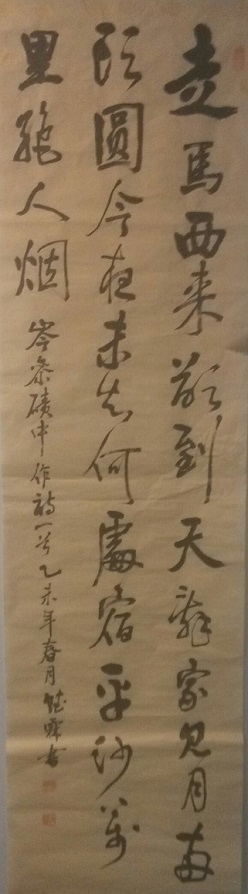 走馬西来欲到天辞家見月两
回圓今夜未知何處宿平沙萬
里絶人烟 岑参磧中作詩一首乙未年春月書